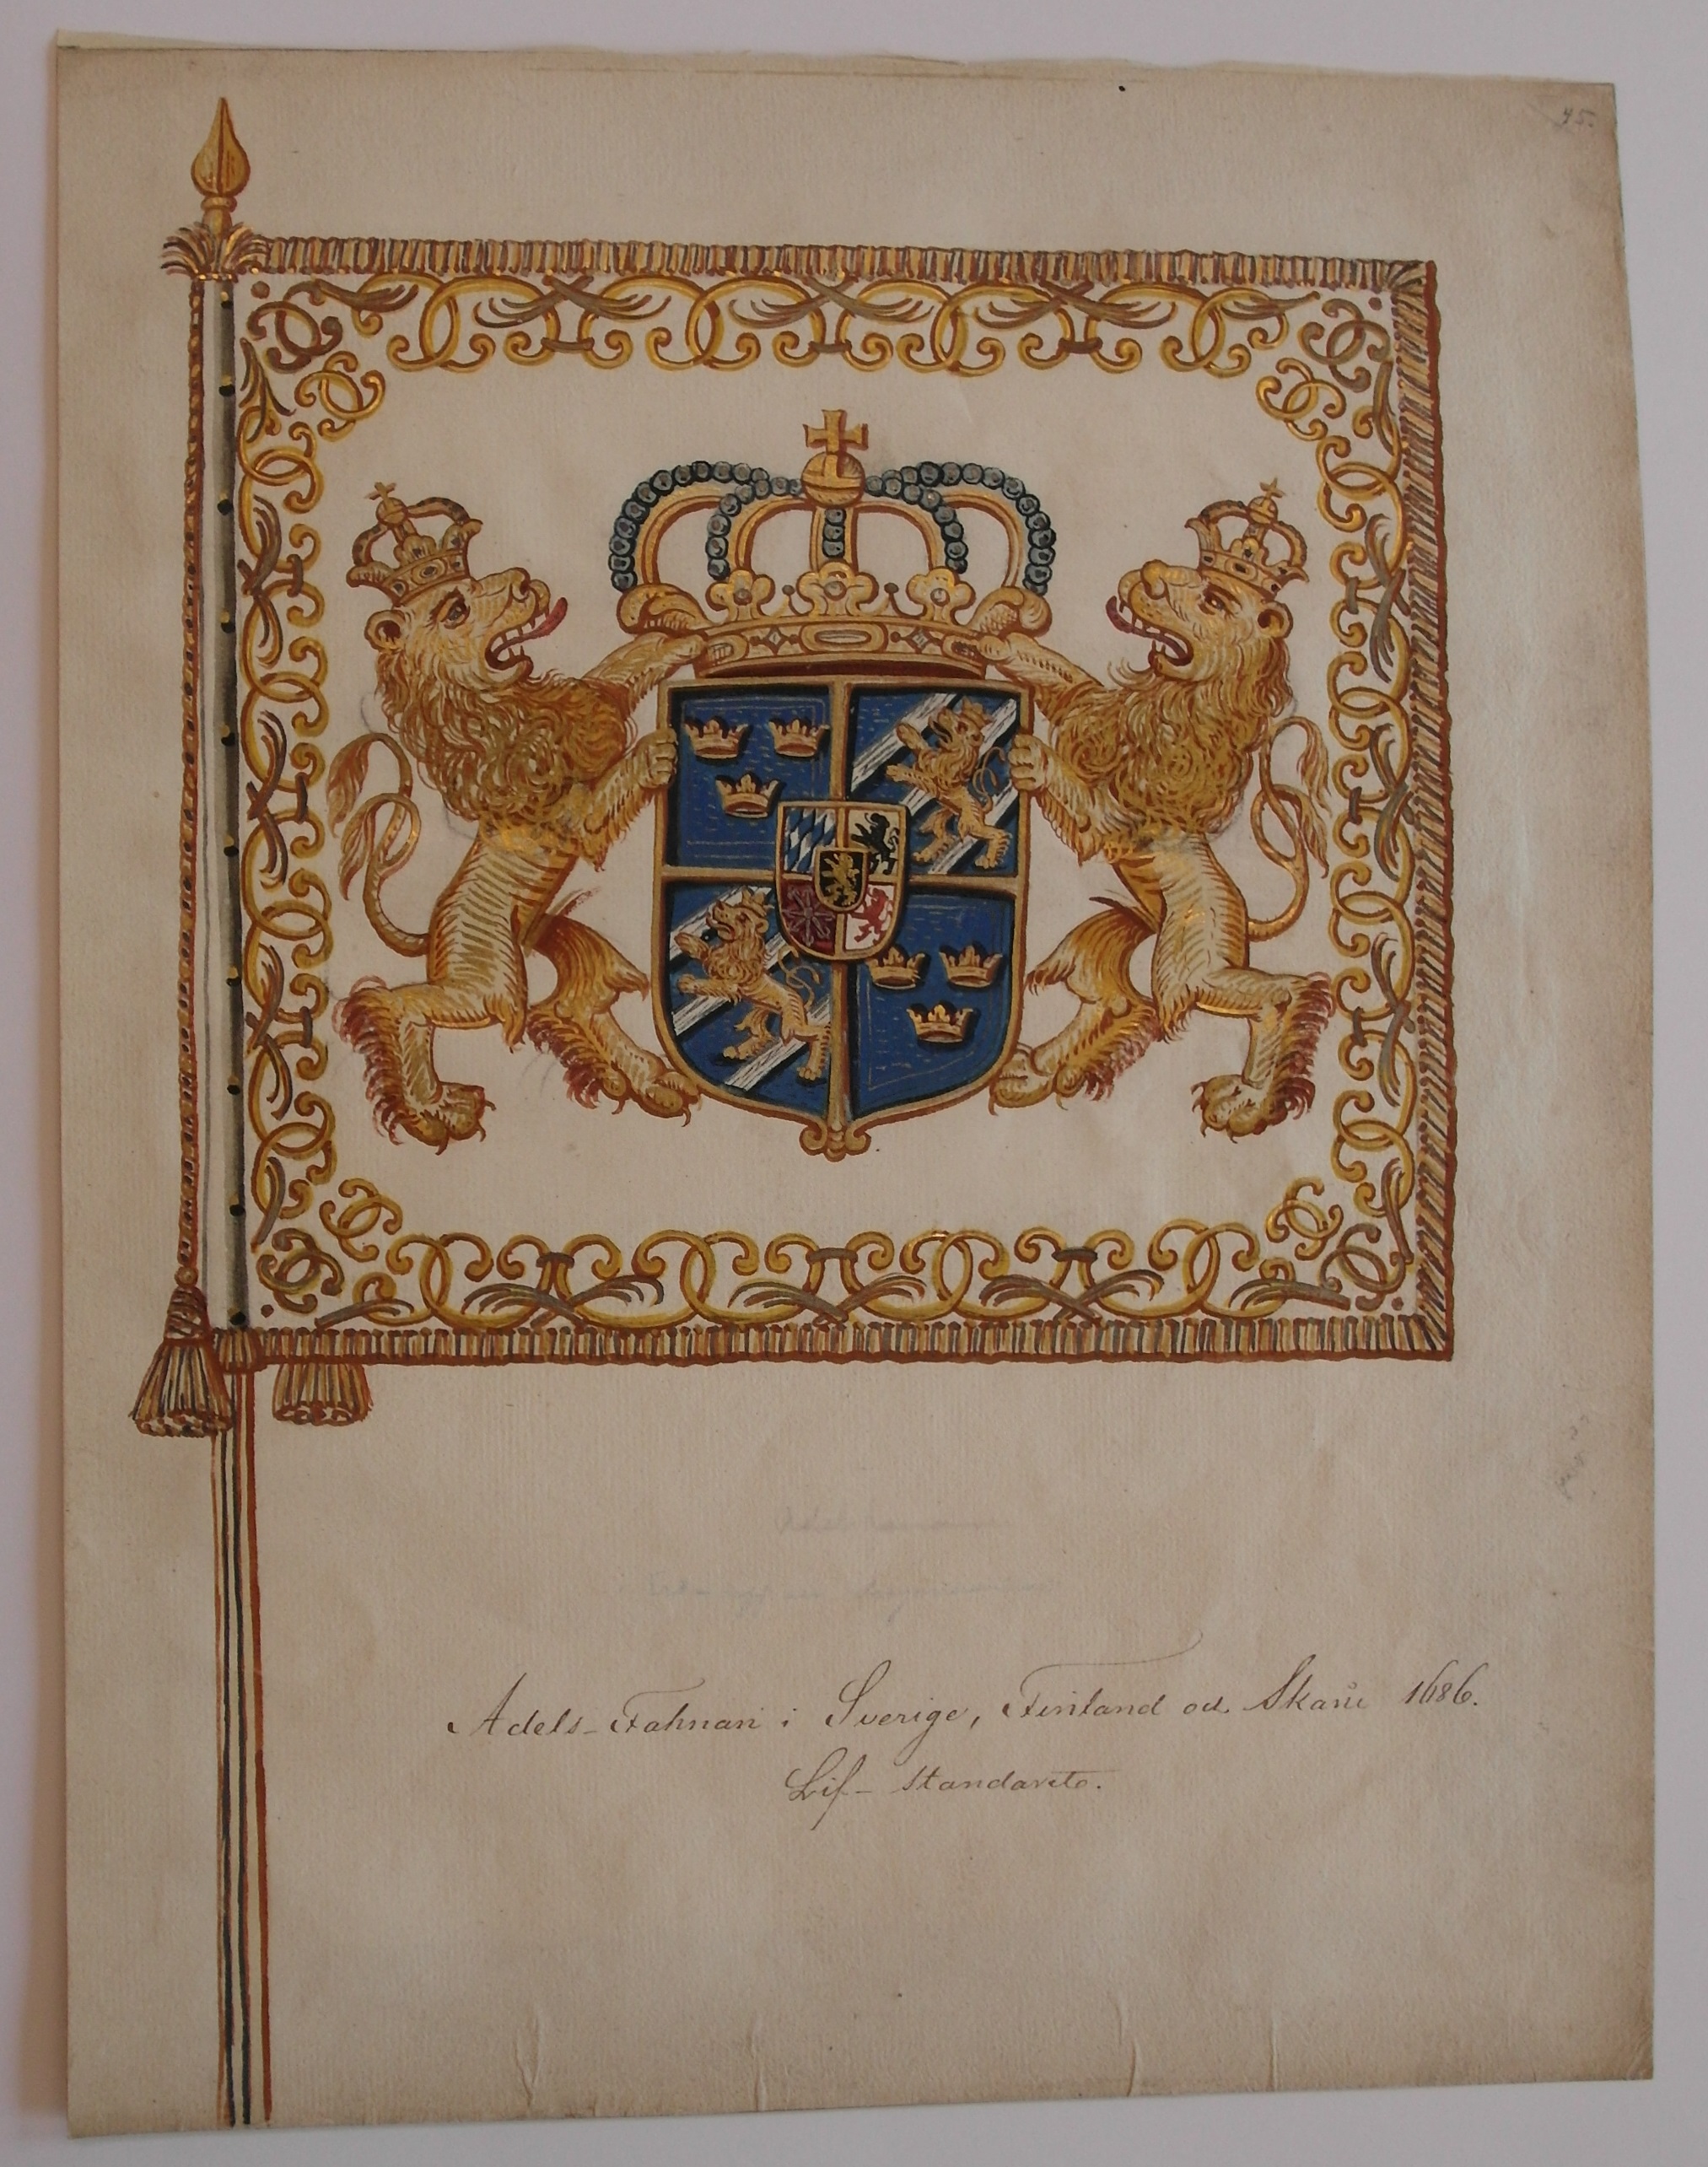 45.
Adels-Fahnan i Sverige, Finland och Skåne 1686.
Lif-standaret.